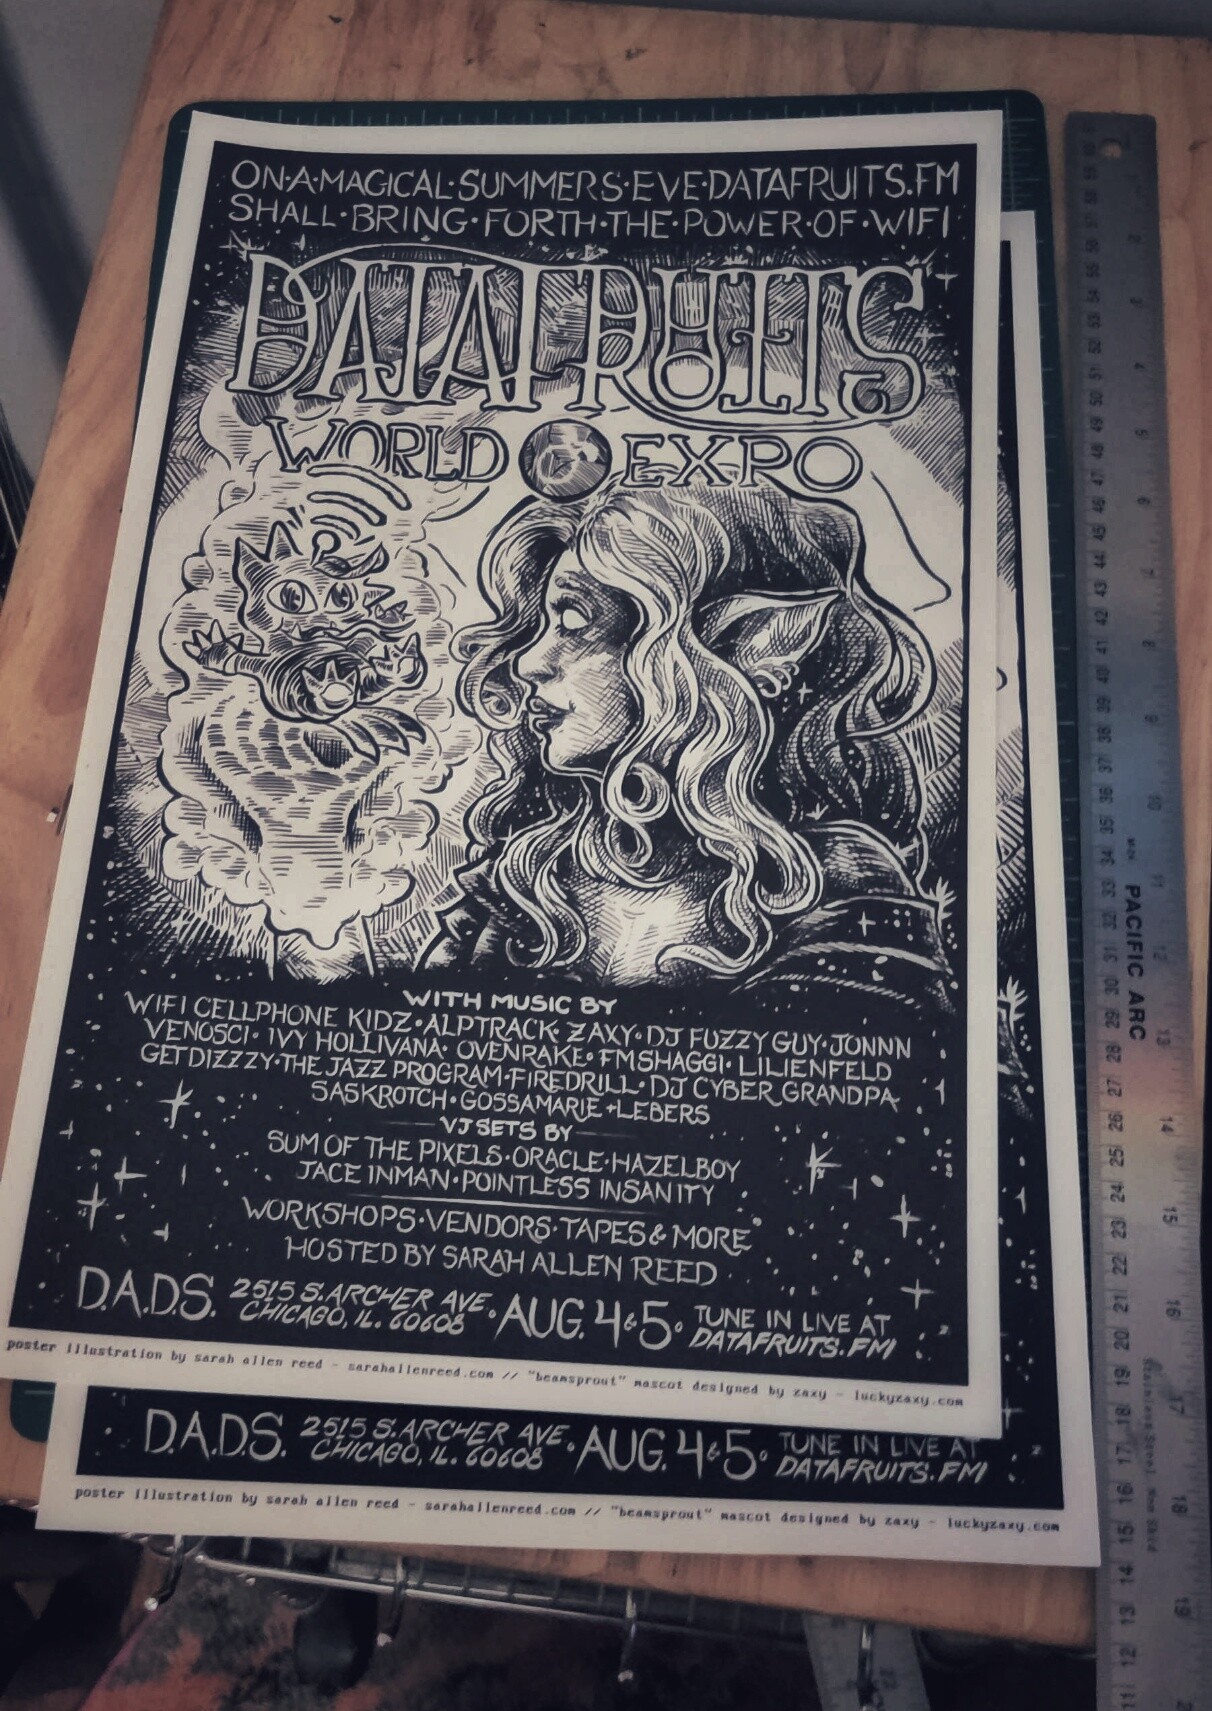 ON·A·MAGICAL·SUMMERS·EVE·DATAFRUITS.FM
SHALL·BRING·FORTH·THE·POWER·OF·WIFI
DATAFRUITS
WORLD EXPO
WITH MUSIC BY
WIFI CELLPHONE KIDZ·ALPTRACK·ZAXY·DJ FUZZY GUY·JONNN
VENOSCI·IVY HOLLIVANA·OVENRAKE·FMSHAGGI·LILIENFELD
GETDIZZZY·THE JAZZ PROGRAM·FIREDRILL·DJ CYBER GRANDPA
SASKROTCH·GOSSAMARIE+LEBERS
VJ SETS BY
SUM OF THE PIXELS·ORACLE·HAZELBOY
JACE INMAN·POINTLESS INSANITY
WORKSHOPS·VENDORS·TAPES & MORE
HOSTED BY SARAH ALLEN REED
D.A.D.S. 2515 S. ARCHER AVE. CHICAGO, IL. 60608 · AUG. 4&5 · TUNE IN LIVE AT DATAFRUITS.FM
poster illustration by sarah allen reed - sarahallenreed.com // "beamsprout" mascot designed by zaxy - luckyzaxy.com
D.A.D.S. 2515 S. ARCHER AVE. CHICAGO, IL. 60608 · AUG. 4&5 · TUNE IN LIVE AT DATAFRUITS.FM
poster illustration by sarah allen reed - sarahallenreed.com // "beamsprout" mascot designed by zaxy - luckyzaxy.com
PACIFIC ARC